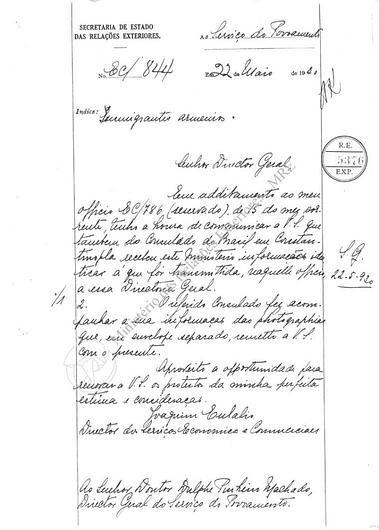 SECRETARIA DE ESTADO
DAS RELAÇÕES EXTERIORES.
Ao Serviço do Povoamento
No. EC/844
Em 22 de Maio de 1920
Indice: Immigrantes armenios.
Senhor Director Geral
R.E.
5376
EXP.
Em additamento ao meu
officio EC/786 (reservado), de 15 do mez cor-
rente, tenho a honra de communicar a V.S. que
tambem do Consulado do Brasil em Constan-
tinopla recebeu este Ministerio informações iden-
ticas á que foi transmittida, naquelle officio,
a essa Directoria Geral.
S.G.
22-5-920
1/1
2. O referido Consulado fez acom-
panhar a sua informação das photographias
que, em envelope separado, remetto a V.S.
com o presente.
Aproveito a opportunidade para
renovar a V.S. os protestos da minha perfeita
estima e consideração.
Joaquim Eulalio
Director dos Serviços Economicos e Commerciaes
Ao Senhor Doutor Dulphe Pinheiro Machado,
Director Geral do Serviço do Povoamento.
Ministerio das Relações Exteriores - MRE